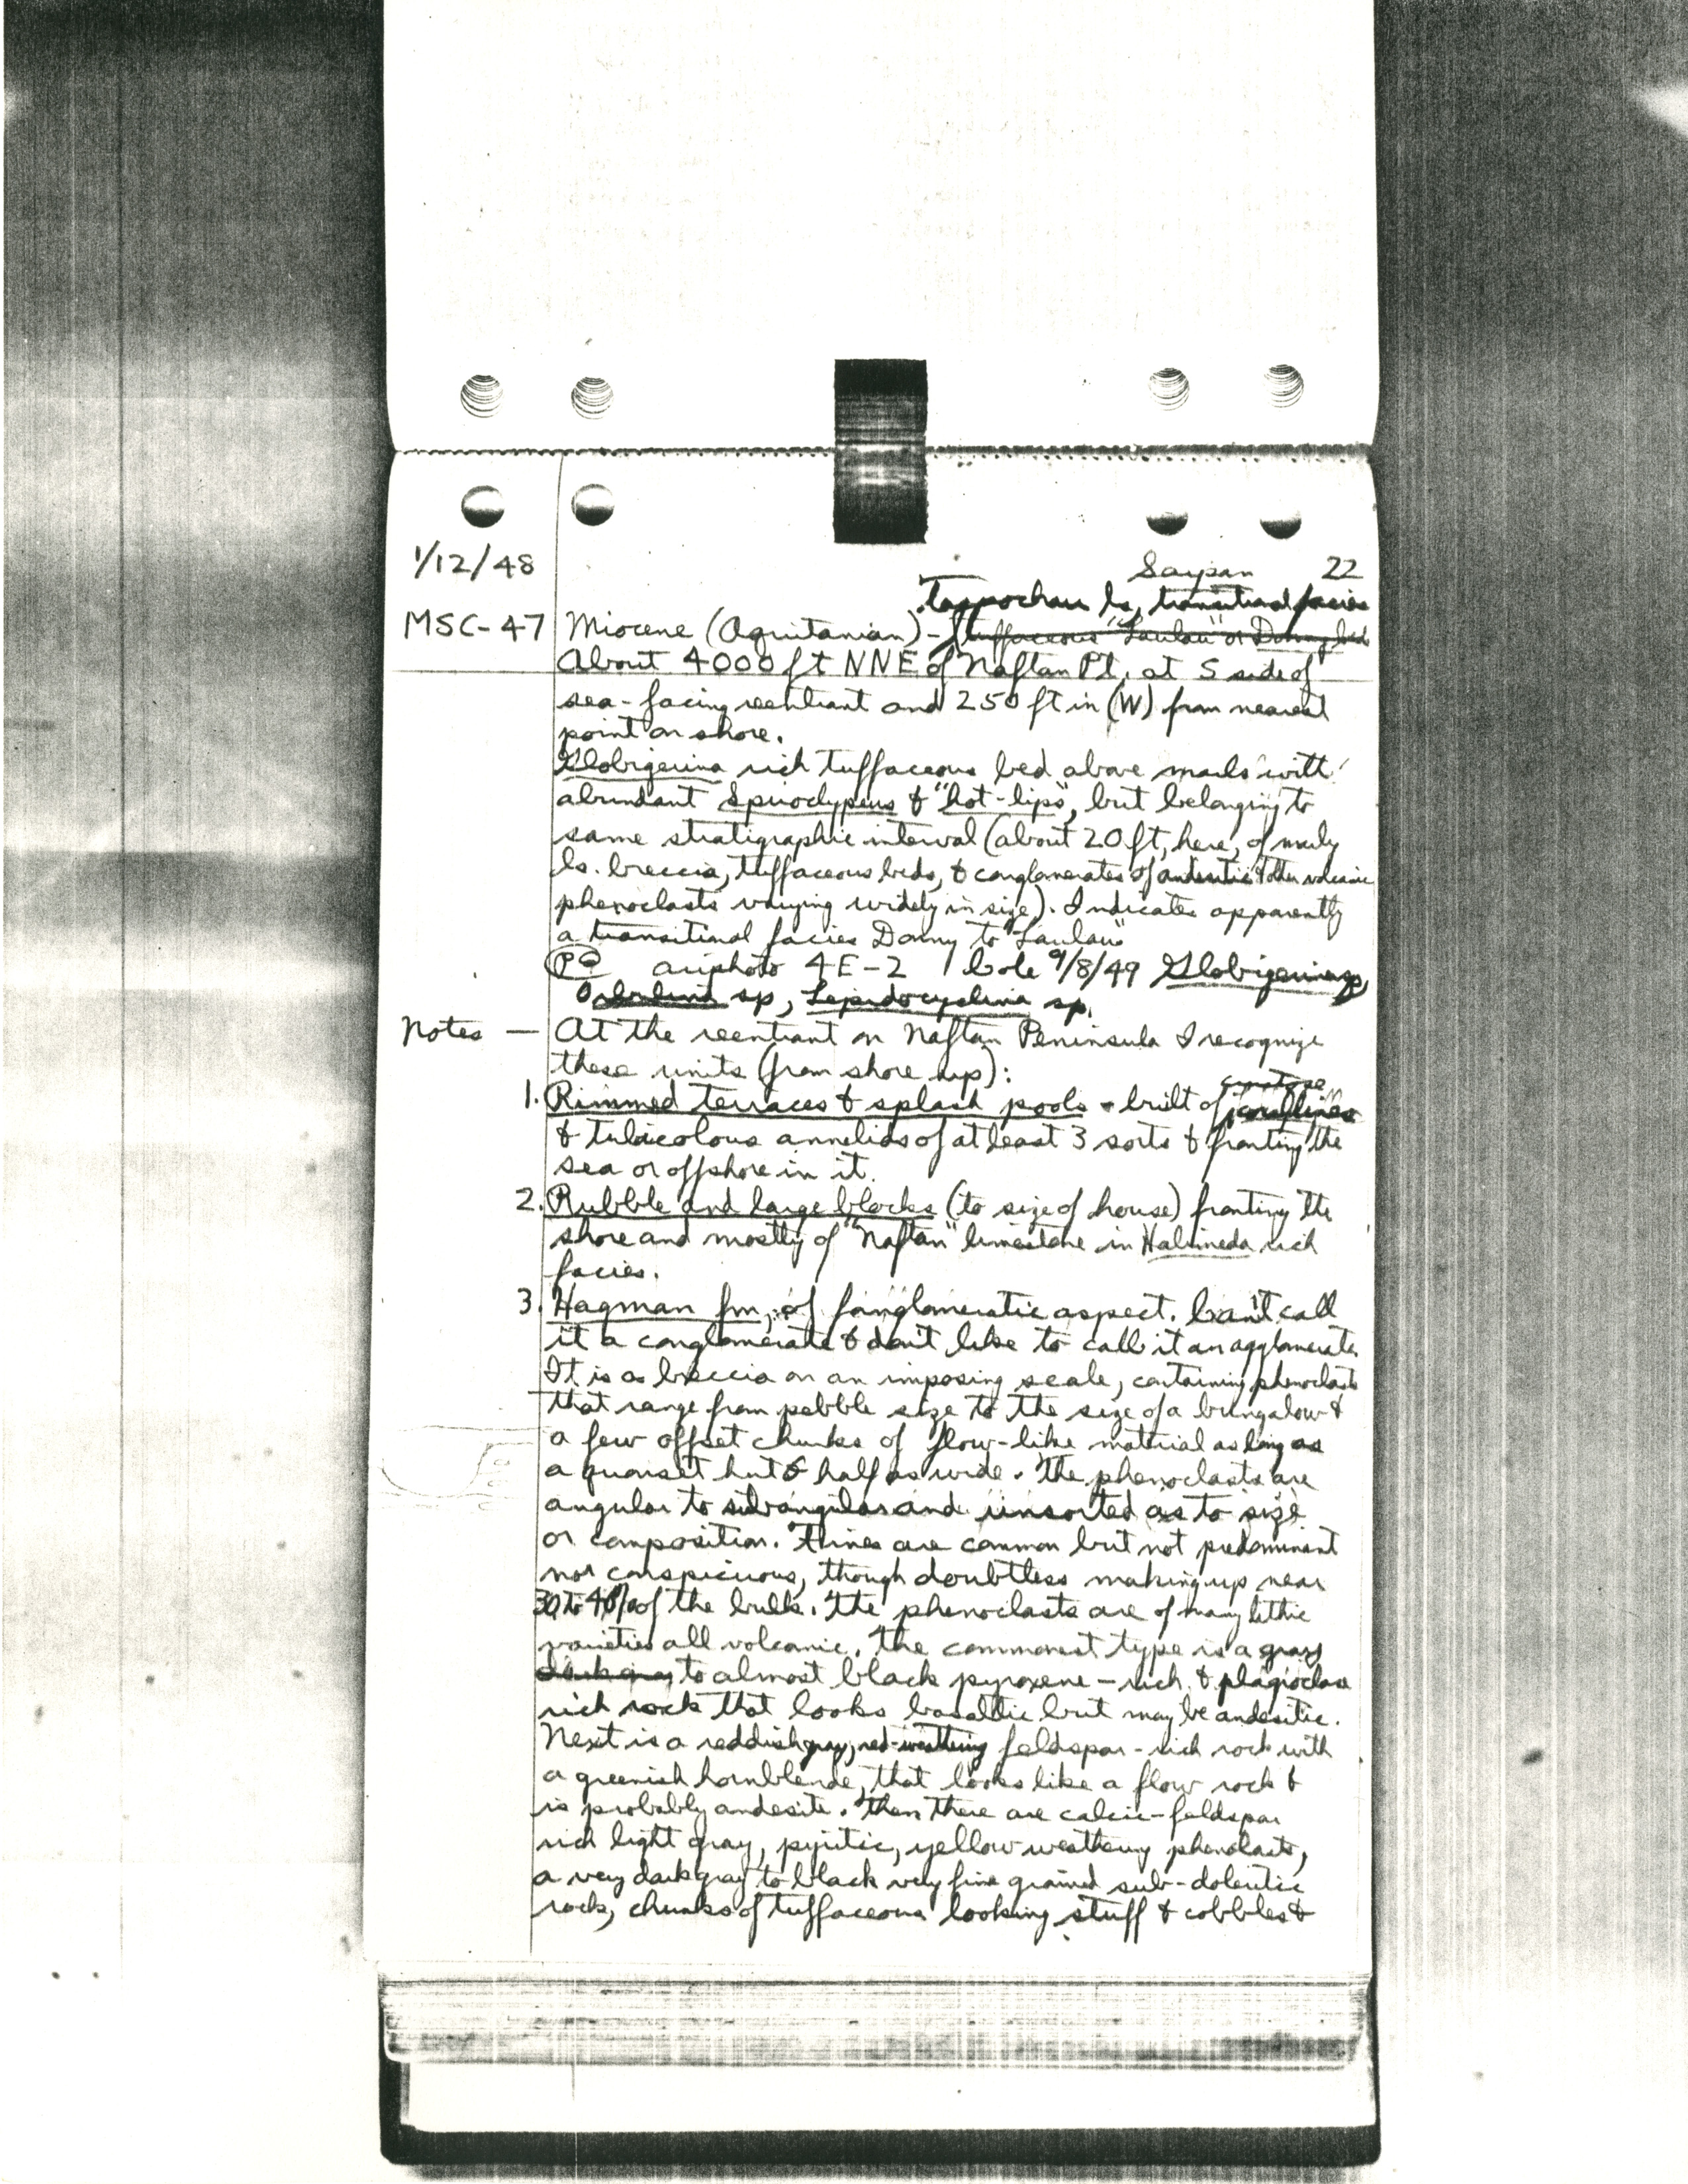 1/12/48
Saipan 22
Tappochau ls, transitional facies
MSC-47 Miocene (Aquitanian) - tuffaceous "Laulau" or Donny beds
About 4000 ft NNE of Naftan Pt. at S side of
sea-facing reentrant and 250 ft in (W) from nearest
point on shore.
Globigerina rich tuffaceous bed above marls with
abundant Spiroclypeus & "hot-lips", but belonging to
same stratigraphic interval (about 20 ft, here, of marly
ls. breccia, tuffaceous beds, & conglomerates of andesitic & other volcanic
phenoclasts varying widely in size). Indicates apparently
a transitional facies Donny to "Laulau"
airphoto 4E-2 Cole 9/8/49 Globigerina sp,
Orbulina sp, Lepidocyclina sp.
Notes — At the reentrant on Naftan Peninsula I recognize
these units (from shore up):
1. Rimmed terraces & splash pools - built of "corallines"
& tubicolous annelids of at least 3 sorts & fronting the
sea or offshore in it.
2. Rubble and large blocks (to size of house) fronting the
shore and mostly of "Naftan" limestone in Halimeda rich
facies.
3. Hagman fm, of fanglomeratic aspect. Can't call
it a conglomerate & don't like to call it an agglomerate.
It is a breccia on an imposing scale, containing phenoclasts
that range from pebble size to the size of a bungalow &
a few offset chunks of flow-like material as long as
a quonset hut & half as wide. The phenoclasts are
angular to subangular and unsorted as to size
or composition. Fines are common but not predominant
nor conspicuous, though doubtless making up near
30 to 40% of the bulk. The phenoclasts are of many lithic
varieties all volcanic. The commonest type is a gray
dark gray to almost black pyroxene-rich & plagioclase
rich rock that looks basaltic but may be andesitic.
Next is a reddish gray, red-weathering feldspar-rich rock with
a greenish hornblende, that looks like a flow rock &
is probably andesite. Then there are calcic-feldspar
rich light gray, pyritic, yellow weathering phenoclasts,
a very dark gray to black very fine grained sub-doleritic
rock, chunks of tuffaceous looking stuff & cobbles &